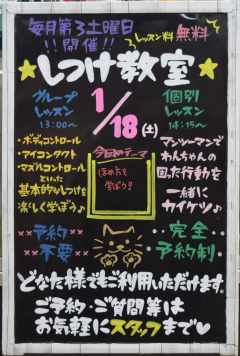 毎月第3土曜日
!!開催!!
レッスン料 無料
★しつけ教室★
グループ
レッスン
13:00〜
1/18(土)
個別
レッスン
14:15〜
・ボディコントロール
・アイコンタクト
・マズルコントロール
といった
基本的なしつけを
楽しく学ぼう♪
今回のテーマ
ほめ方を
学ぼう!
マンツーマンで
わんちゃんの
困った行動を
一緒に
カイケツ♪
予約
不要
完全
予約制
どなた様でもご利用いただけます。
ご予約・ご質問等は
お気軽にスタッフまで♡